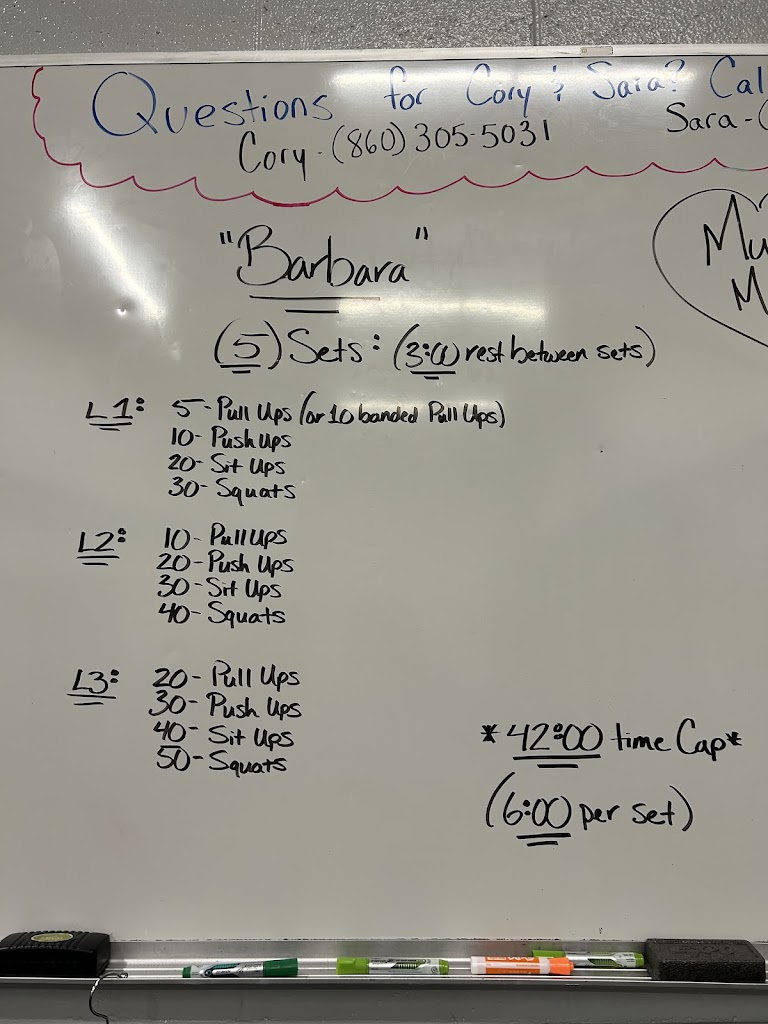 Questions for Cory & Sara? Cal
Cory - (860) 305-5031
Sara - (
"Barbara"
(5) Sets: (3:00 rest between sets)
L1: 5- Pull Ups (or 10 banded Pull Ups)
10- Push ups
20- Sit Ups
30- Squats
L2: 10- Pull ups
20- Push Ups
30- Sit Ups
40- Squats
L3: 20- Pull Ups
30- Push Ups
40- Sit Ups
50- Squats
*42:00 time Cap*
(6:00 per set)
Mu
M